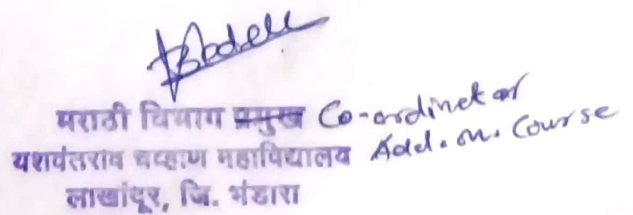 मराठी विभाग प्रमुख Co-ordinetor
यशवंतराव चव्हाण महाविद्यालय Add. on. Course
लाखांदूर, जि. भंडारा